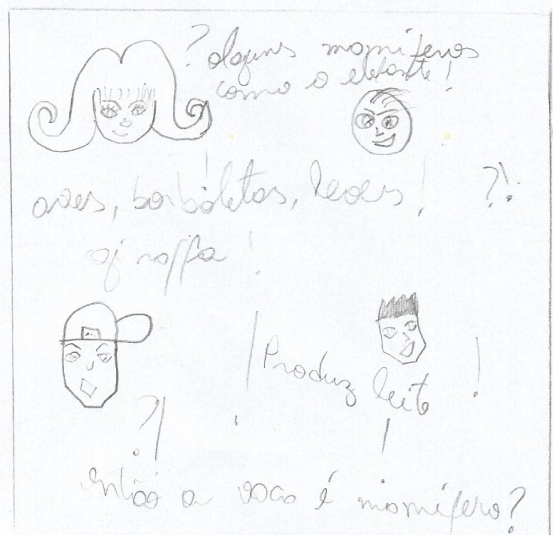 ? alguns mamíferos
como o elefante!
aves, borboletas, leões! ?!
giraffa!
Produz leite!
?!
então a vaca é mamífero?